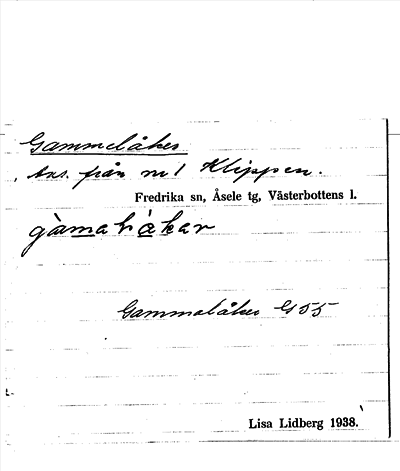 Gammelåker
från nr 1 Klippen.
Fredrika sn, Åsele tg, Västerbottens l.
Gammalåker G 55
Lisa Lidberg 1938.